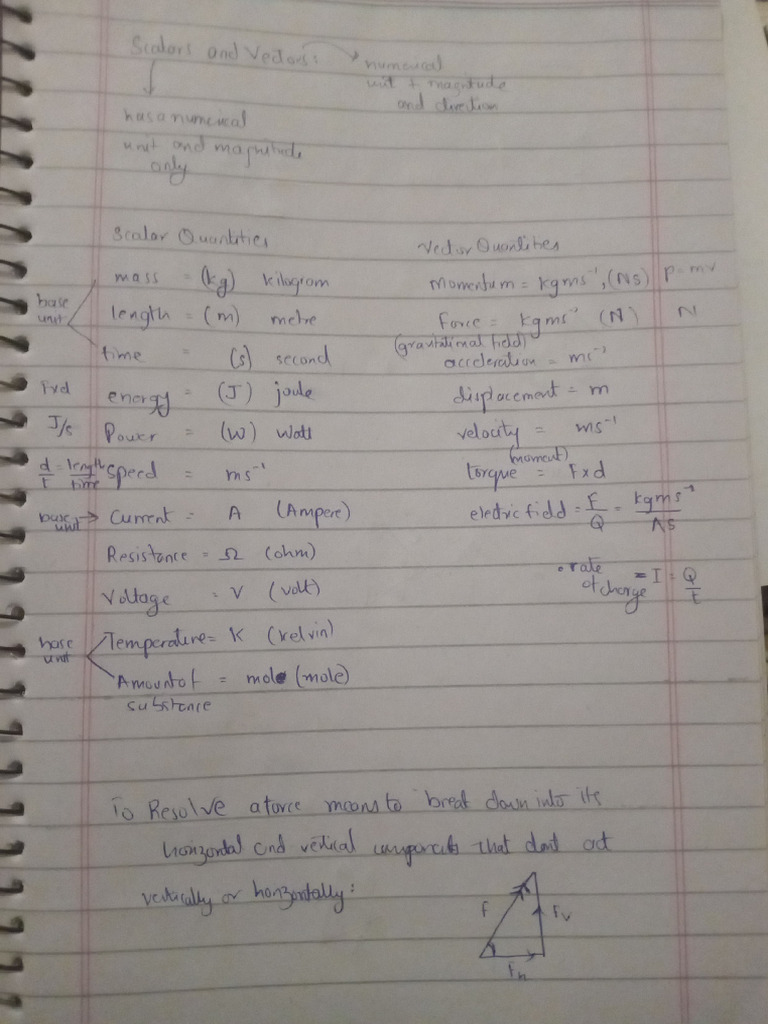 Scalars and Vectors:
numerical
unit + magnitude
and direction
has a numerical
unit and magnitude
only
Scalar Quantities
mass = (kg) kilogram
base
unit
length = (m) metre
time = (s) second
Fxd energy = (J) joule
J/s Power = (W) Watt
d/t = length/time speed = ms⁻¹
base unit → Current = A (Ampere)
Resistance = Ω (ohm)
Voltage = V (volt)
base
unit
Temperature = K (kelvin)
Amount of = mole (mole)
substance
Vector Quantities
Momentum = kgms⁻¹, (Ns) p = mv
Force = kgms⁻² (N) N
(gravitational field)
acceleration = ms⁻²
displacement = m
velocity = ms⁻¹
(moment)
torque = F x d
electric field = F/Q = kgms⁻²/AS
rate of charge = I = Q/t
To Resolve a force means to break down into its
horizontal and vertical components that dont act
vertically or horizontally:
F
Fv
Fh